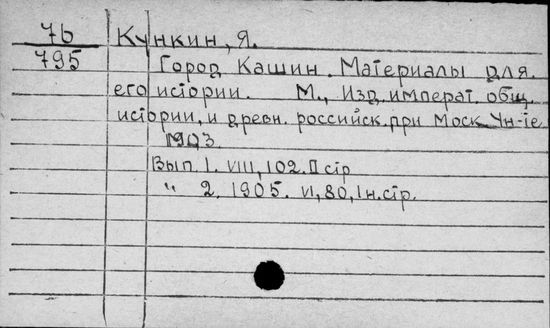 76 Кункин, Я.
795 Город Кашин. Материалы для
его истории. М., Изд. императ. общ.
истории, и древн. российск. при Моск. Ун-те
1903
Вып. 1. VIII, 102. II стр
" 2. 1905. VI, 80, 1 н. стр.